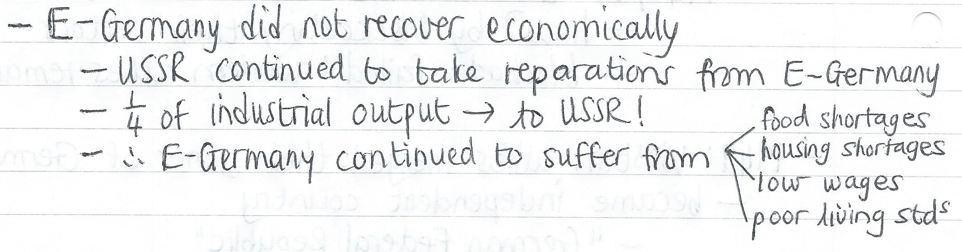 - E-Germany did not recover economically
- USSR continued to take reparations from E-Germany
- 1/4 of industrial output → to USSR!
- ∴ E-Germany continued to suffer from
food shortages
housing shortages
low wages
poor living stds